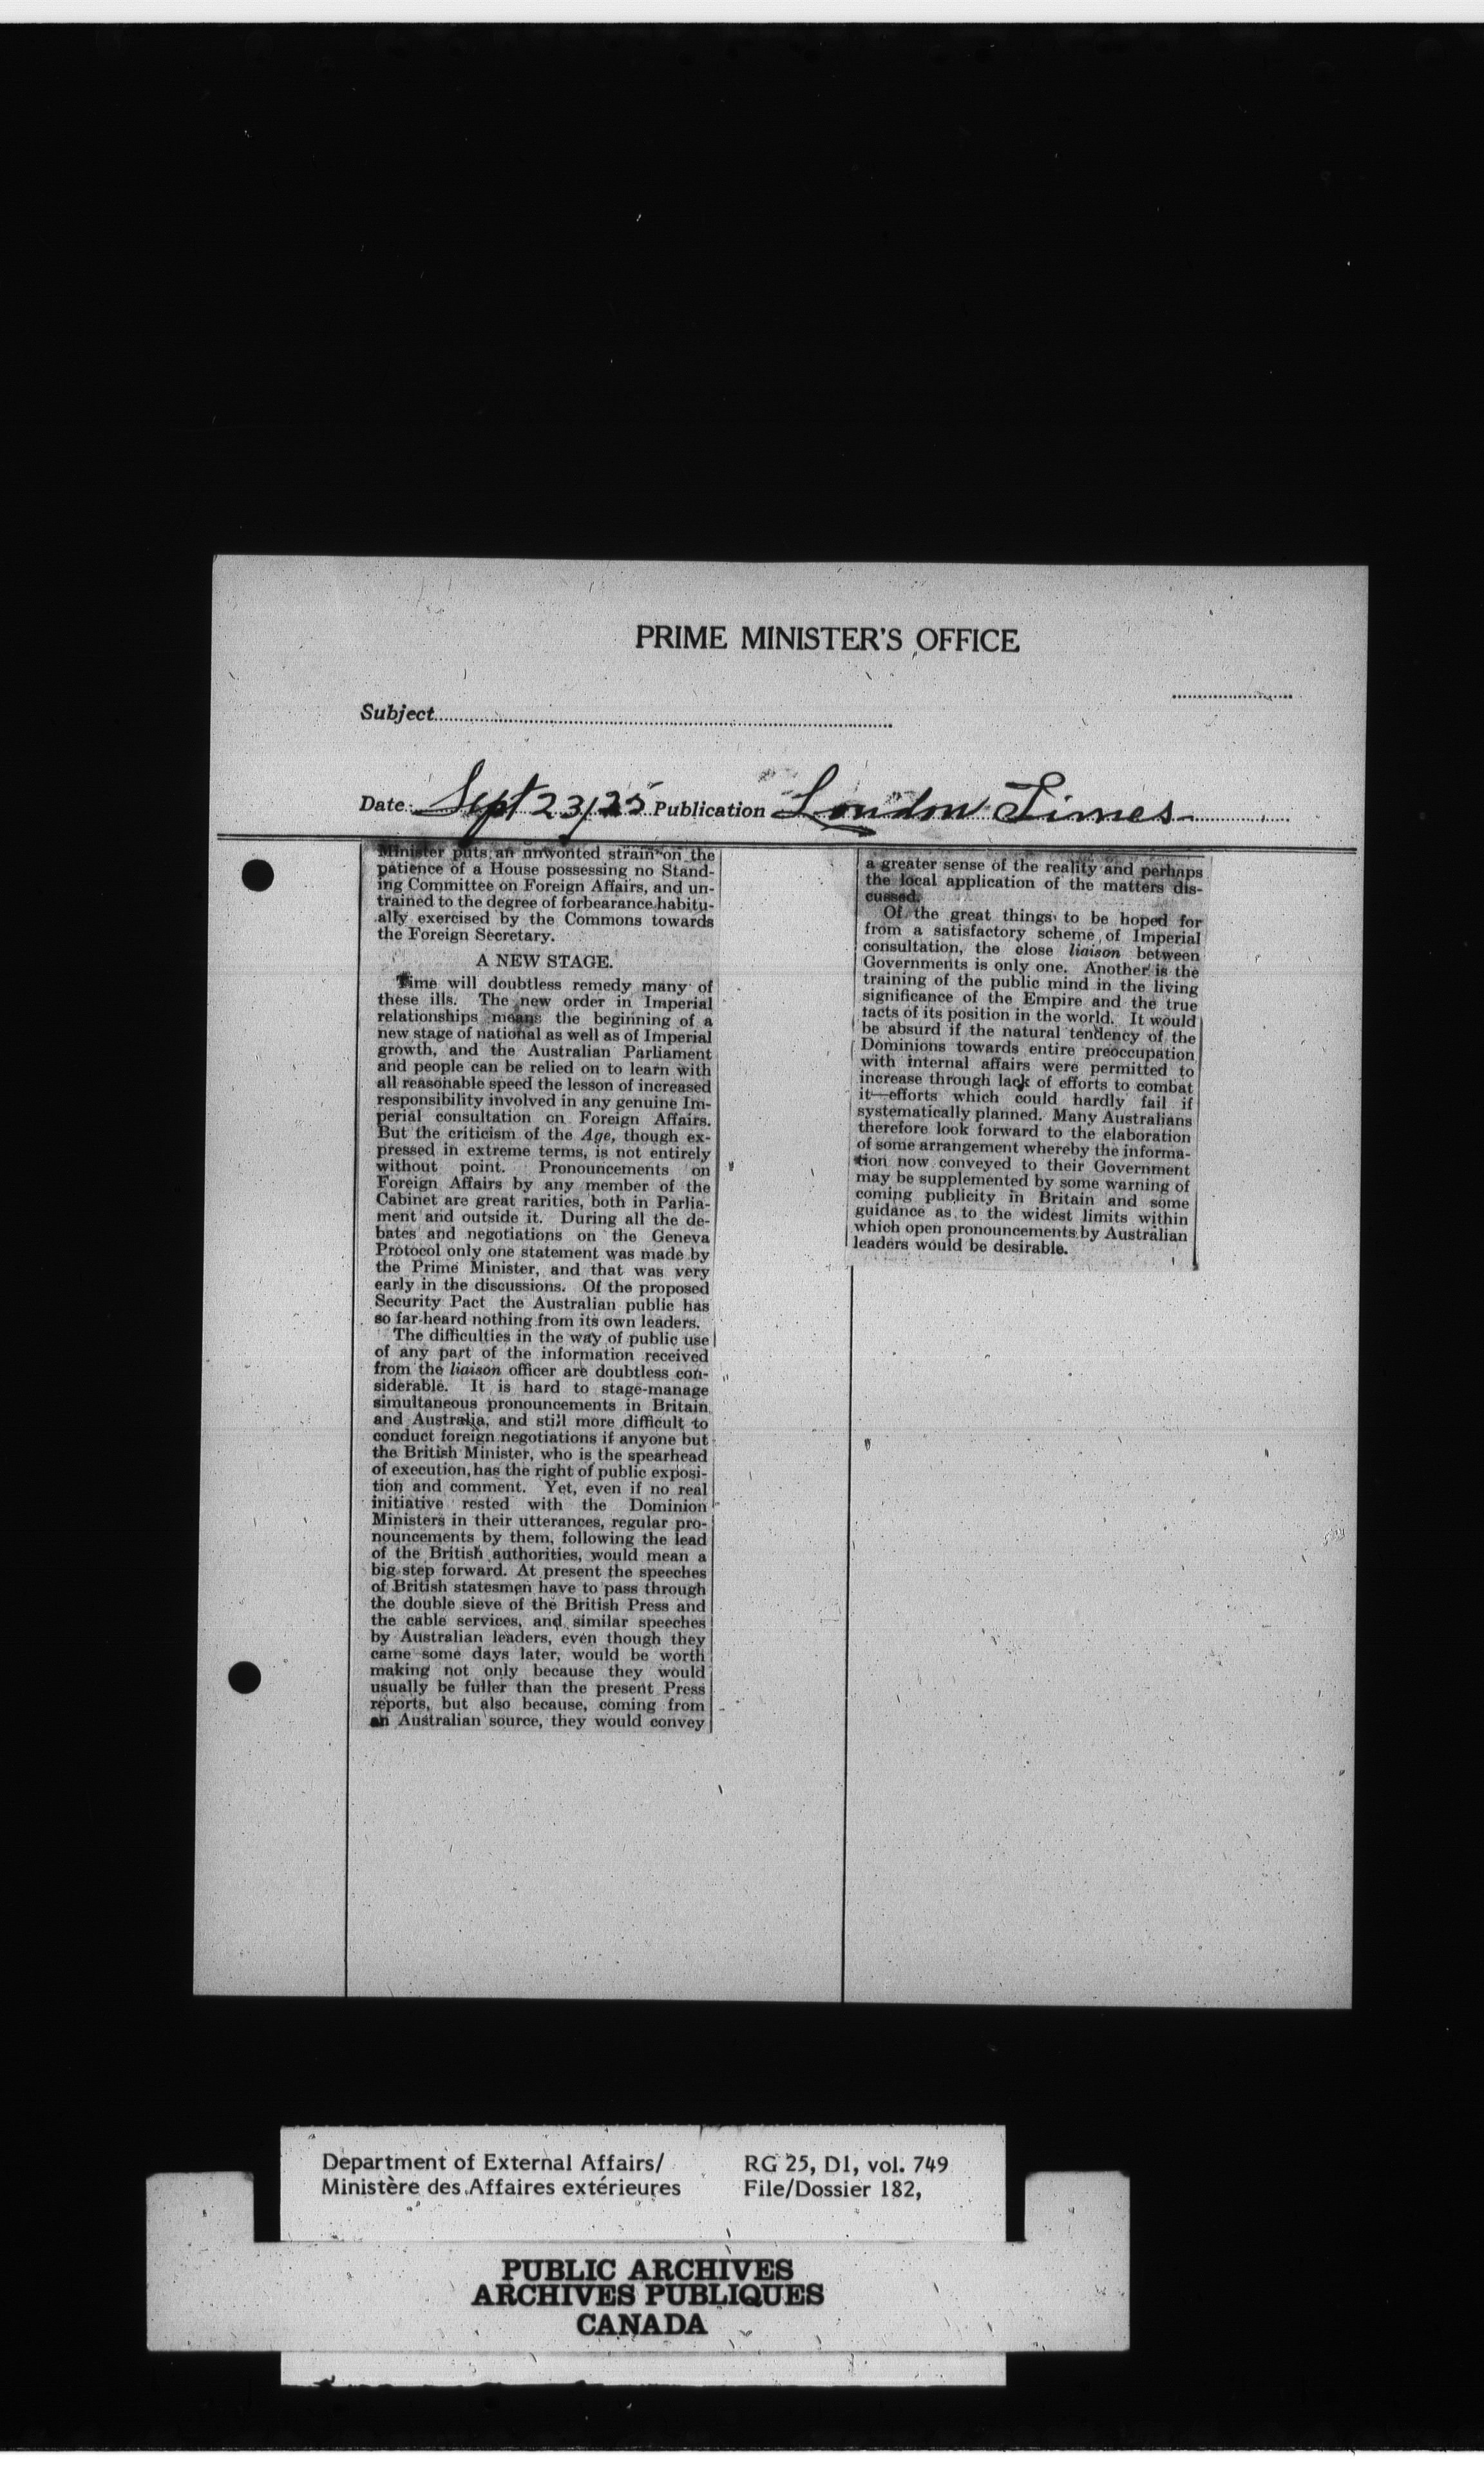 PRIME MINISTER'S OFFICE
Subject
Date Sept 23/25 Publication London Times
Minister puts an unwonted strain on the
patience of a House possessing no Stand-
ing Committee on Foreign Affairs, and un-
trained to the degree of forbearance habitu-
ally exercised by the Commons towards
the Foreign Secretary.
A NEW STAGE.
Time will doubtless remedy many of
these ills. The new order in Imperial
relationships means the beginning of a
new stage of national as well as of Imperial
growth, and the Australian Parliament
and people can be relied on to learn with
all reasonable speed the lesson of increased
responsibility involved in any genuine Im-
perial consultation on Foreign Affairs.
But the criticism of the Age, though ex-
pressed in extreme terms, is not entirely
without point. Pronouncements on
Foreign Affairs by any member of the
Cabinet are great rarities, both in Parlia-
ment and outside it. During all the de-
bates and negotiations on the Geneva
Protocol only one statement was made by
the Prime Minister, and that was very
early in the discussions. Of the proposed
Security Pact the Australian public has
so far heard nothing from its own leaders.
The difficulties in the way of public use
of any part of the information received
from the liaison officer are doubtless con-
siderable. It is hard to stage-manage
simultaneous pronouncements in Britain
and Australia, and still more difficult to
conduct foreign negotiations if anyone but
the British Minister, who is the spearhead
of execution, has the right of public exposi-
tion and comment. Yet, even if no real
initiative rested with the Dominion
Ministers in their utterances, regular pro-
nouncements by them, following the lead
of the British authorities, would mean a
big step forward. At present the speeches
of British statesmen have to pass through
the double sieve of the British Press and
the cable services, and similar speeches
by Australian leaders, even though they
came some days later, would be worth
making not only because they would
usually be fuller than the present Press
reports, but also because, coming from
an Australian source, they would convey
a greater sense of the reality and perhaps
the local application of the matters dis-
cussed.
Of the great things to be hoped for
from a satisfactory scheme of Imperial
consultation, the close liaison between
Governments is only one. Another is the
training of the public mind in the living
significance of the Empire and the true
facts of its position in the world. It would
be absurd if the natural tendency of the
Dominions towards entire preoccupation
with internal affairs were permitted to
increase through lack of efforts to combat
it—efforts which could hardly fail if
systematically planned. Many Australians
therefore look forward to the elaboration
of some arrangement whereby the informa-
tion now conveyed to their Government
may be supplemented by some warning of
coming publicity in Britain and some
guidance as to the widest limits within
which open pronouncements by Australian
leaders would be desirable.
Department of External Affairs/ RG 25, D1, vol. 749
Ministère des Affaires extérieures File/Dossier 182,
PUBLIC ARCHIVES
ARCHIVES PUBLIQUES
CANADA